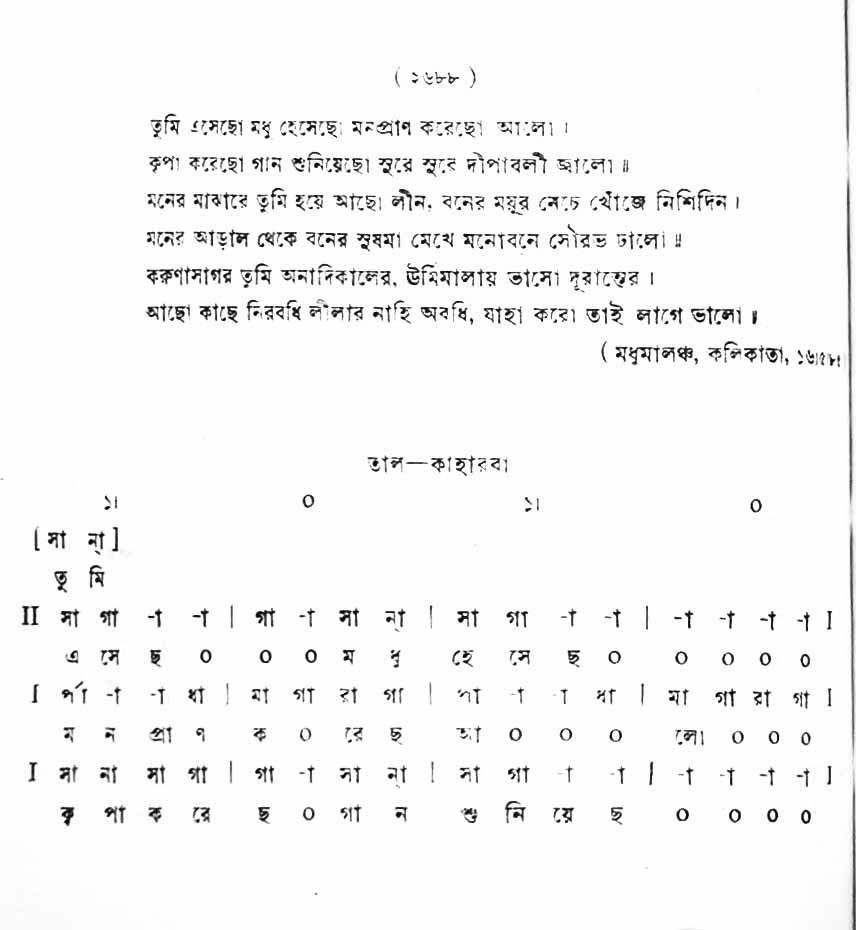 ( ১৬৮৮ )
তুমি এসেছো মধু হেসেছো মনপ্রাণ করেছো আলো ।
কৃপা করেছো গান শুনিয়েছো সুরে সুরে দীপাবলী জ্বালো ॥
মনের মাঝারে তুমি হয়ে আছো লীন, বনের ময়ূর নেচে খোঁজে নিশিদিন ।
মনের আড়াল থেকে বনের সুষমা মেখে মনোবনে সৌরভ ঢালো ॥
করুণাসাগর তুমি অনাদিকালের, ঊর্মিমালায় ভাসো দূরান্তের ।
আছো কাছে নিরবধি লীলার নাহি অবধি, যাহা করো তাই লাগে ভালো ॥
( মধুমালঞ্চ, কলিকাতা,
তাল—কাহারবা
১। ০ ১। ০
[ সা না্ ]
তু মি
II সা গা -া -া | গা -া সা না্ | সা গা -া -া | -া -া -া -া I
এ সে ছ ০ ০ ০ ম ধু হে সে ছ ০ ০ ০ ০ ০
I -া -া ধা | মা গা রা গা | পা -া -া ধা | মা গা রা গা I
ম ন প্রা ণ ক ০ রে ছ আ ০ ০ ০ লো ০ ০ ০
I সা না সা গা | গা -া সা না্ | সা গা -া -া | -া -া -া -া I
কৃ পা ক রে ছ ০ গা ন শু নি য়ে ছ ০ ০ ০ ০